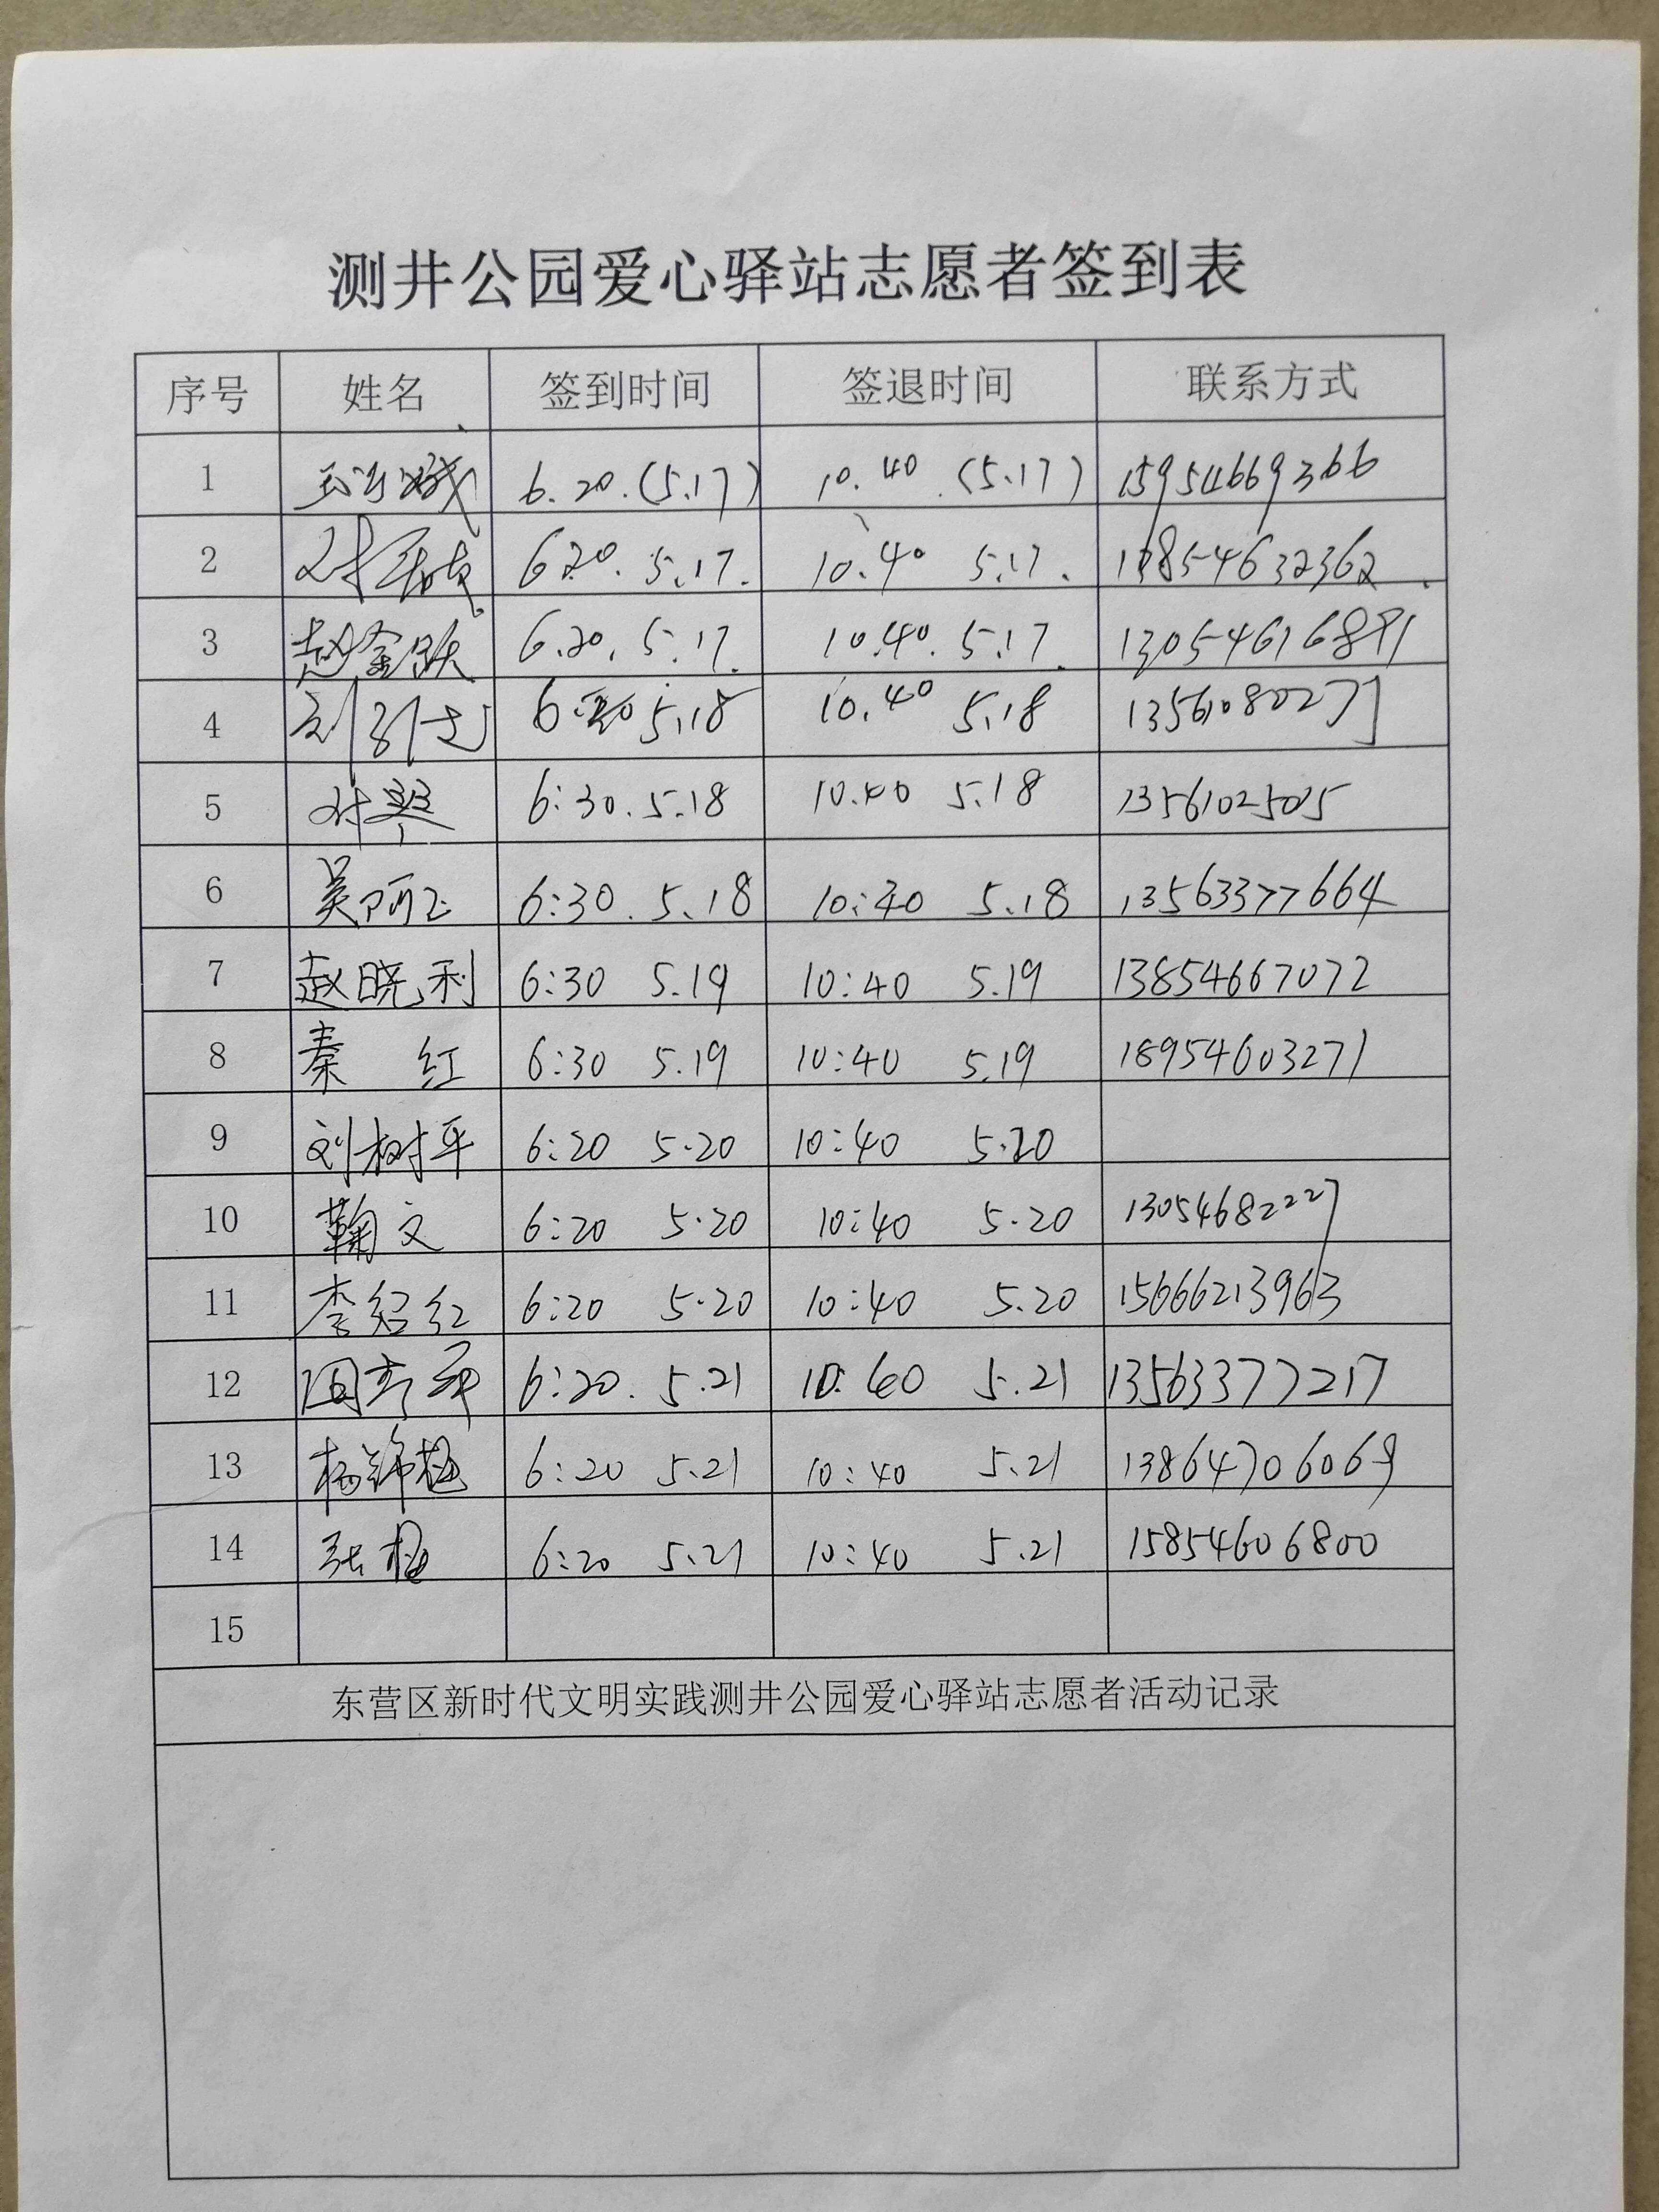 测井公园爱心驿站志愿者签到表
序号 姓名 签到时间 签退时间 联系方式
1 6.20.(5.17) 10.40.(5.17) 15954669366
2 620. 5.17. 10.40 5.17.
3 赵金跃 6.20. 5.17. 10.40. 5.17. 13054616891
4 5.18 10.40 5.18
5 6:30.5.18 10.40 5.18
6 吴阿玉 6:30.5.18 10:40 5.18 13563377664
7 赵晓利 6:30 5.19 10:40 5.19 13854667072
8 秦红 6:30 5.19 10:40 5.19 18954603271
9 刘树平 6:20 5.20 10:40 5.20
10 鞠文 6:20 5.20 10:40 5.20 13054682227
11 李绍红 6:20 5.20 10:40 5.20 15666213963
12 6:20. 5.21 5.21 13563377217
13 杨锦梅 6:20 5.21 10:40 5.21 13864706069
14 张梅 6:20 5.21 10:40 5.21 15854606800
15
东营区新时代文明实践测井公园爱心驿站志愿者活动记录